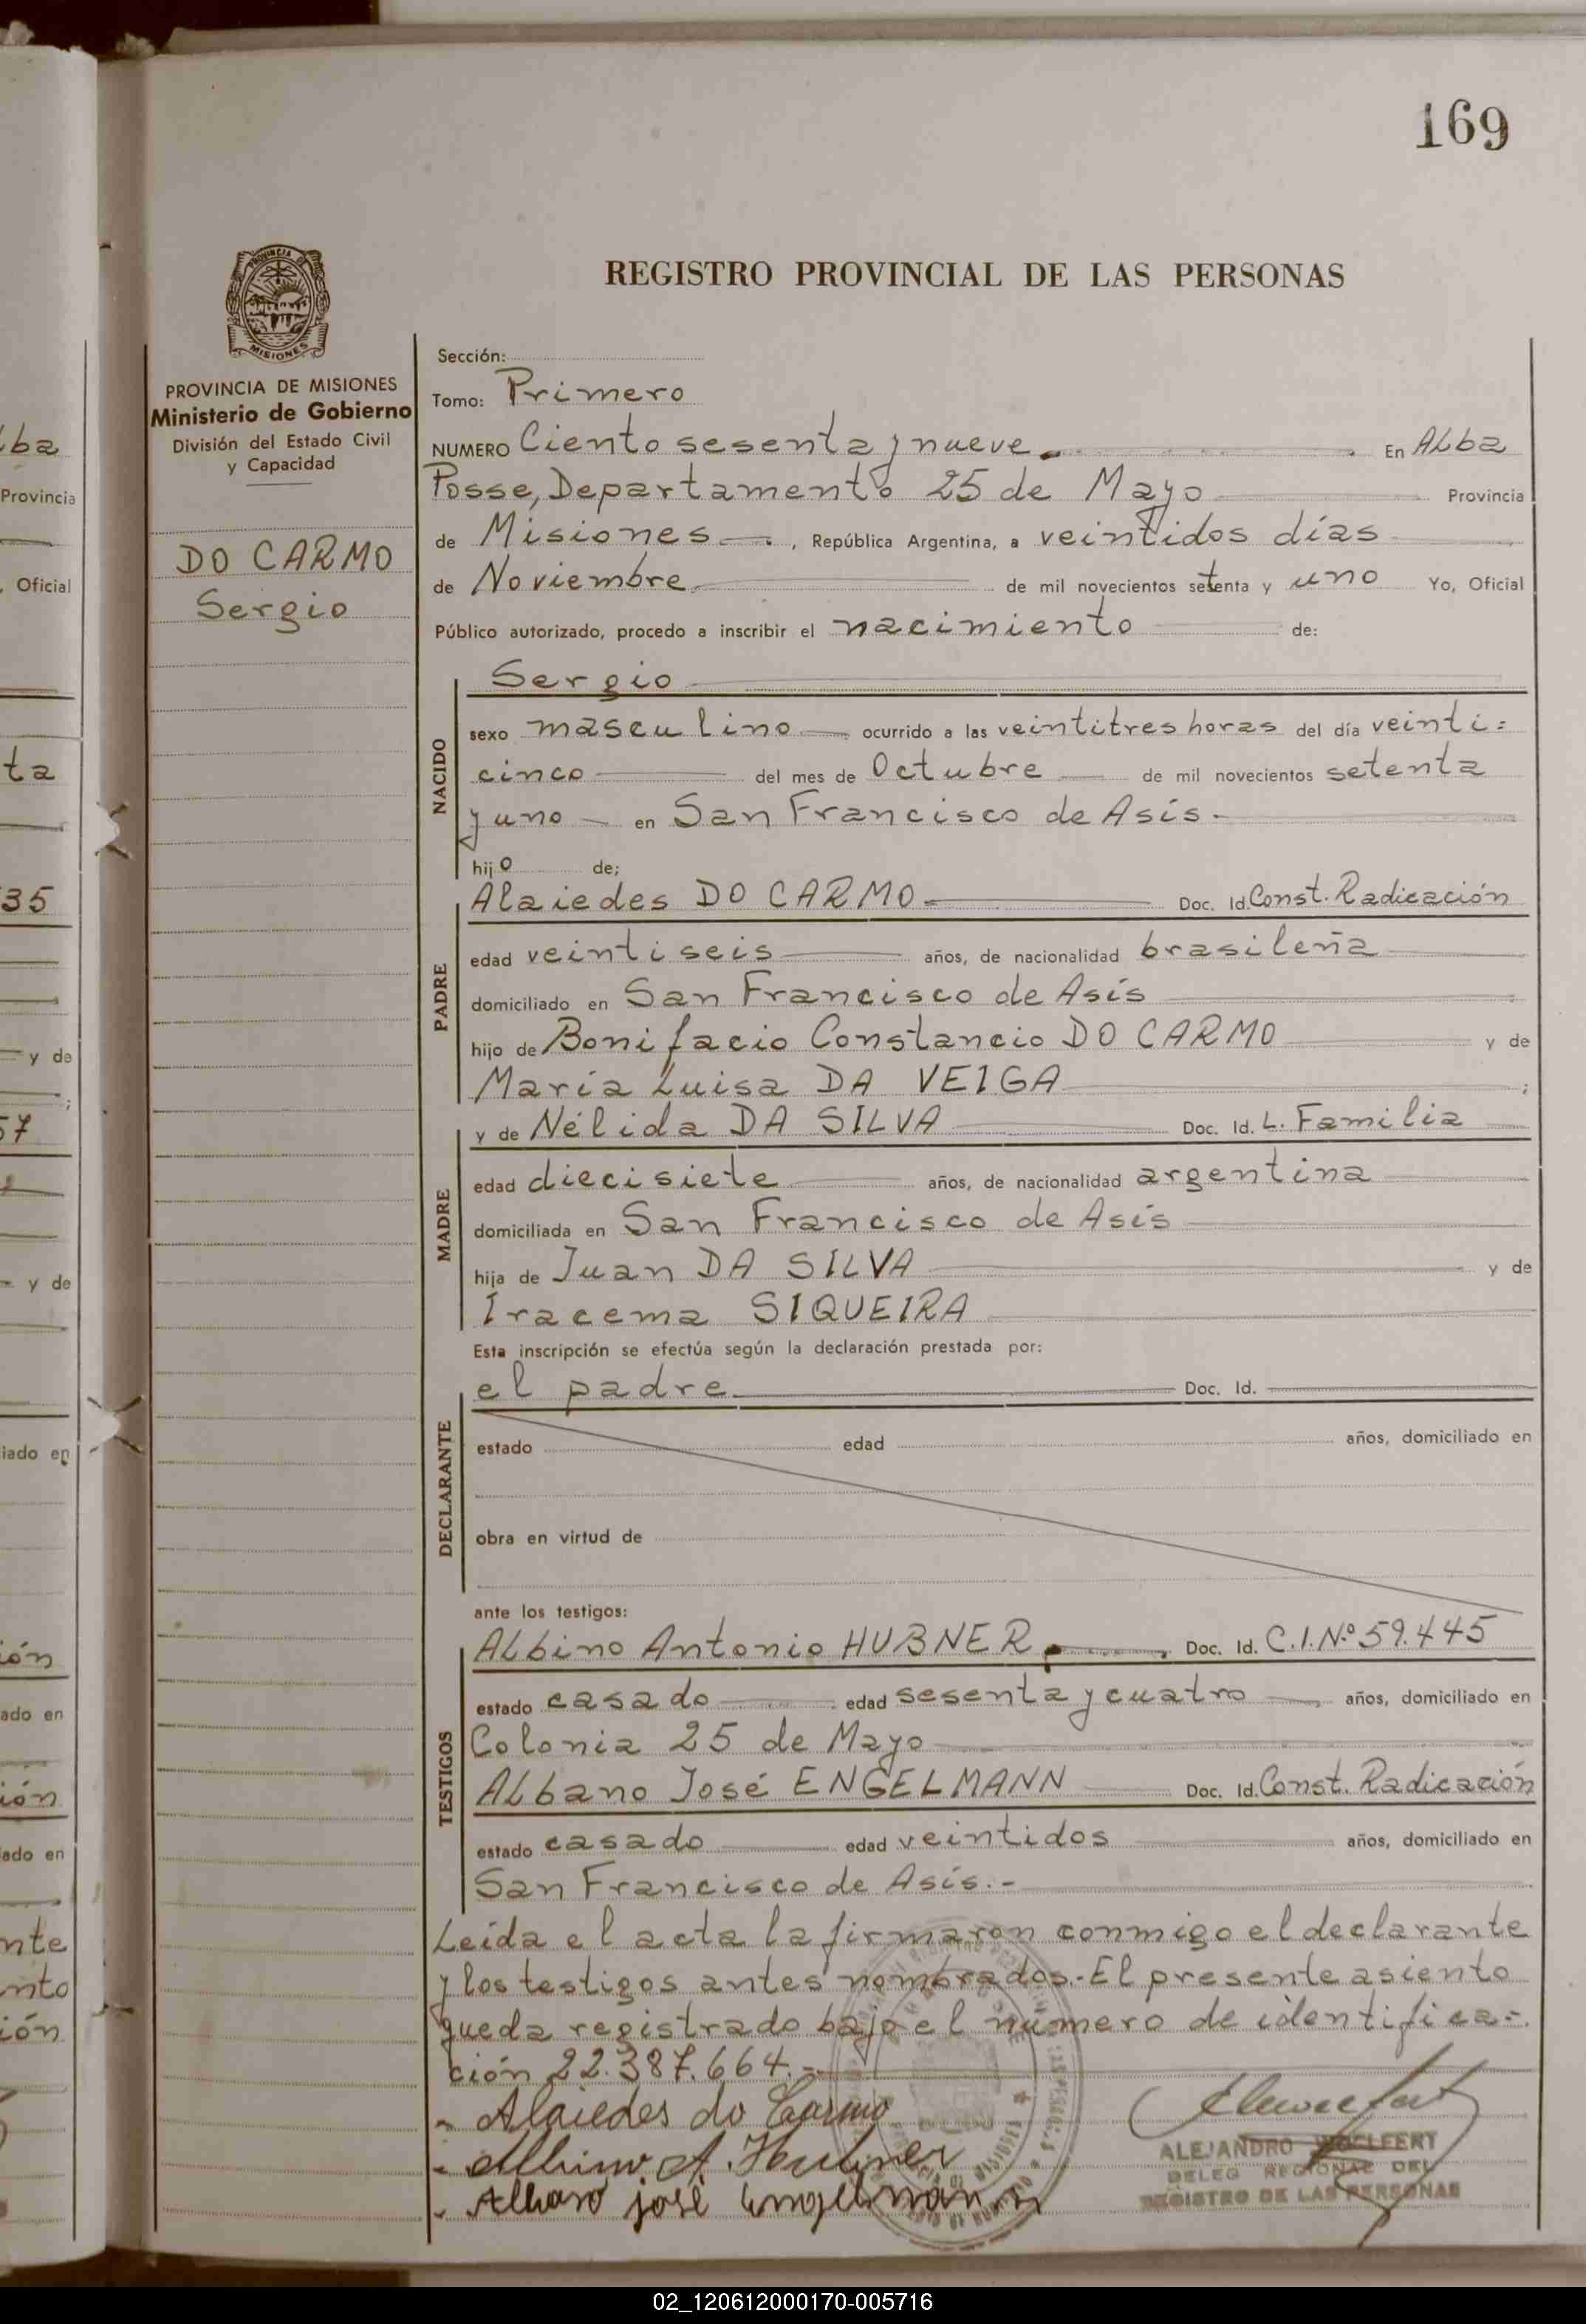 169
REGISTRO PROVINCIAL DE LAS PERSONAS
PROVINCIA DE MISIONES
Ministerio de Gobierno
División del Estado Civil
y Capacidad
DO CARMO
Sergio
Sección:
Tomo: Primero
NUMERO Ciento sesenta y nueve. En Alba
Posse, Departamento 25 de Mayo Provincia
de Misiones, República Argentina, a veintidos días
de Noviembre de mil novecientos setenta y uno Yo, Oficial
Público autorizado, procedo a inscribir el nacimiento de:
NACIDO
Sergio
sexo masculino ocurrido a las veintitres horas del día veinti=
cinco del mes de Octubre de mil novecientos setenta
y uno en San Francisco de Asís.-
hijo de;
PADRE
Alaiedes DO CARMO Doc. Id. Const. Radicación
edad veintiseis años, de nacionalidad brasileña
domiciliado en San Francisco de Asís
hijo de Bonifacio Constancio DO CARMO y de
María Luisa DA VEIGA ;
MADRE
y de Nélida DA SILVA Doc. Id. L. Familia
edad diecisiete años, de nacionalidad argentina
domiciliada en San Francisco de Asís
hija de Juan DA SILVA y de
Iracema SIQUEIRA
Esta inscripción se efectúa según la declaración prestada por:
DECLARANTE
el padre Doc. Id.
estado edad años, domiciliado en
obra en virtud de
ante los testigos:
TESTIGOS
Albino Antonio HUBNER. Doc. Id. C.I.Nº 59.445
estado casado edad sesenta y cuatro años, domiciliado en
Colonia 25 de Mayo
Albano José ENGELMANN Doc. Id. Const. Radicación
estado casado edad veintidos años, domiciliado en
San Francisco de Asís.-
Leída el acta la firmaron conmigo el declarante
y los testigos antes nombrados.- El presente asiento
queda registrado bajo el número de identifica=
ción 22.387.664.-
- Alaiedes do Carmo
- Albino A. Hubner
- Albano josé Engelmann
ALEJANDRO
DELEG REGIONAL DEL
REGISTRO DE LAS PERSONAS
02_120612000170-005716